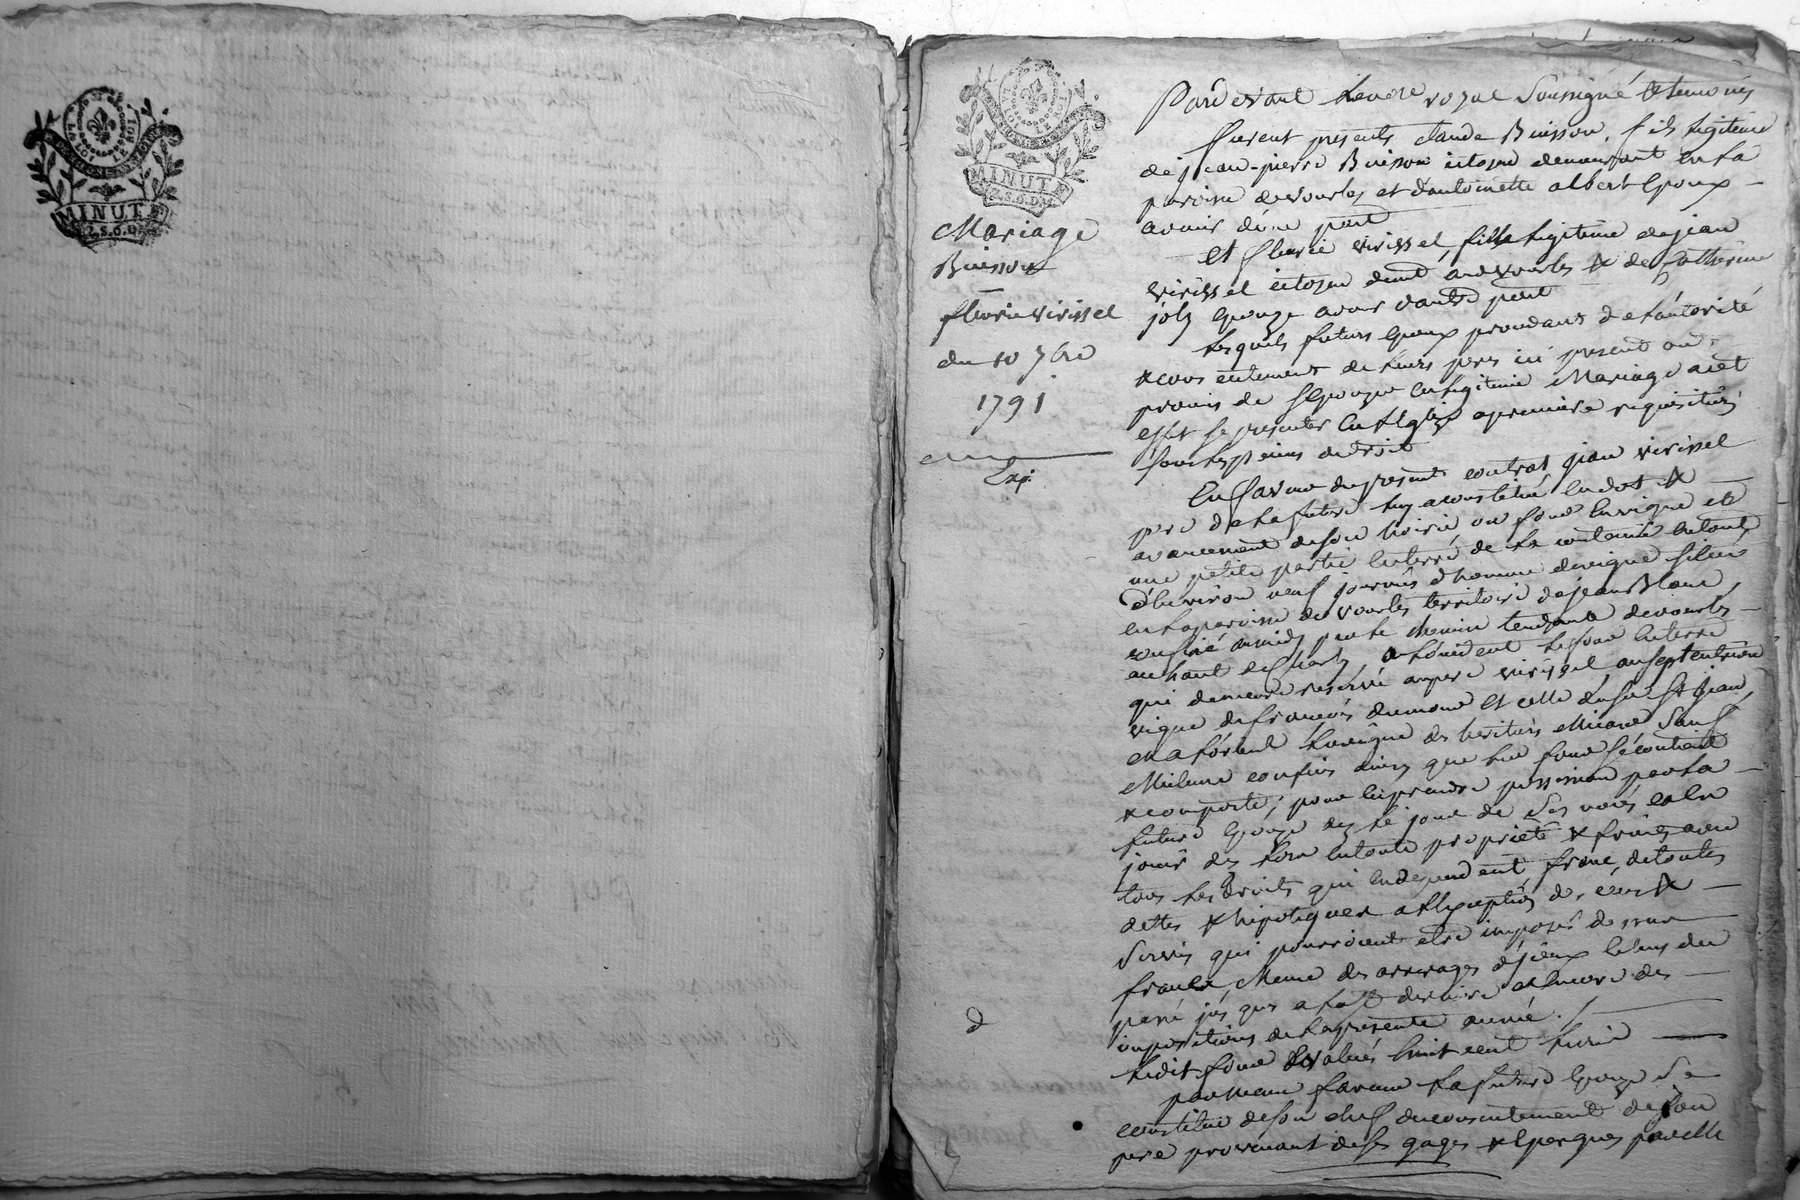 LA LOI
LE ROI
MINUTE
2.S.6.D
LA LOI
LE ROI
MINUTE
2.S.6.D
Mariage
Buisson
fleurie virissel
du 10 7bre
1791
Exp.
Pardevant le nore royal soussigné & temoins
furent presents claude Buisson, fils legitime
de jean-pierre Buisson citoyen demeurant en la
paroisse de vourles et d'antoinette albert Epoux
avenir d'une part
Et fleurie virissel fille legitime de jean
virissel citoyen demt aud vourles & de Catherine
joly Epouze avenir d'autre part
lesquels futurs Epoux procedants de l'autorité
& consentement de leurs peres ici present ont
promis de s'epouzer en legitime Mariage a cet
effet se presenter en l'Eglize a premiere requisition
sous les peines de droit
En faveur du present contrat jean virissel
pere de la future luy a constitué en dot &
avancement de son hoirie, un fond en vigne et
une petite partie en terre de la contenue en tout
d'environ neuf journés d'homme de vigne situé
en la paroisse de vourles territoire de jean Blanc,
confiné au midy par le chemin tendant de vourles
au haut de Charly, a l'occident le fond en terre
qui demeure reservé au pere virissel au septentrion
vigne de francois dumond et celle du sr st jean,
et a l'orient la vigne des heritiers Micard sauf
Meilleurs confins ainsy que led fond se contient
& comporte; pour en prendre possession par la
future Epouze dez le jour de ses noces et en
jouir dez lors en toute propriété & fruits avec
tous les droits qui en dependent, franc de toutes
dettes & hipoteques a l'exception des cens &
servis qui pourroient etre imposés de sur
franc Meme des arrerages d'iceux le tems du
passé jus ques a la st derniere et encore des
impositions de la presente année./
ledit fond Evalué huit cent livres
par Meme faveur la future Epouze se
constitue de son chef du consentement de son
pere provenant de ses gages & Epargnes par elle